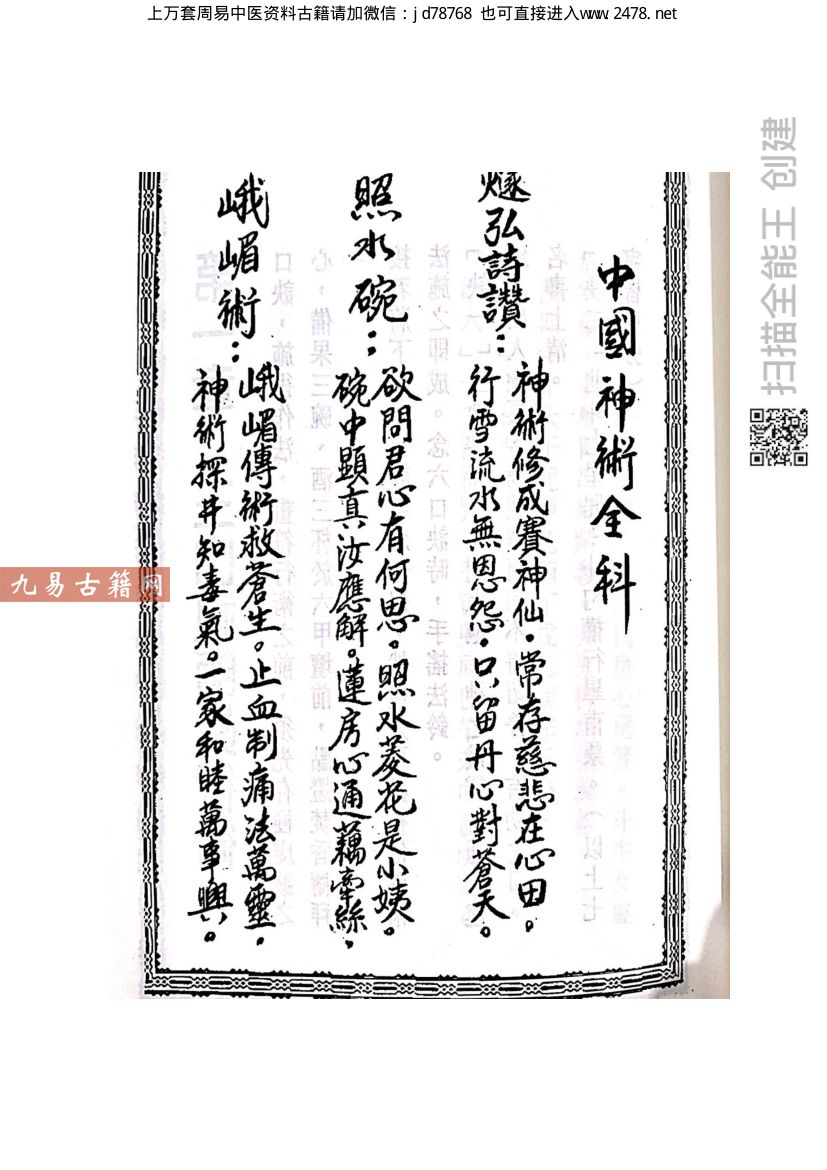 上万套周易中医资料古籍请加微信：jd78768 也可直接进入www.2478.net
中國神術全科
燧弘詩讚：
神術修成賽神仙。常存慈悲在心田。
行雪流水無恩怨。只留丹心對蒼天。
照水碗：
欲問君心有何思。照水菱花是小姨。
碗中顯真汝應解。蓮房心通藕牽絲。
峨嵋術：
峨嵋傳術救蒼生。止血制痛法萬靈。
神術探井知毒氣。一家和睦萬事興。
九易古籍网
扫描全能王 创建